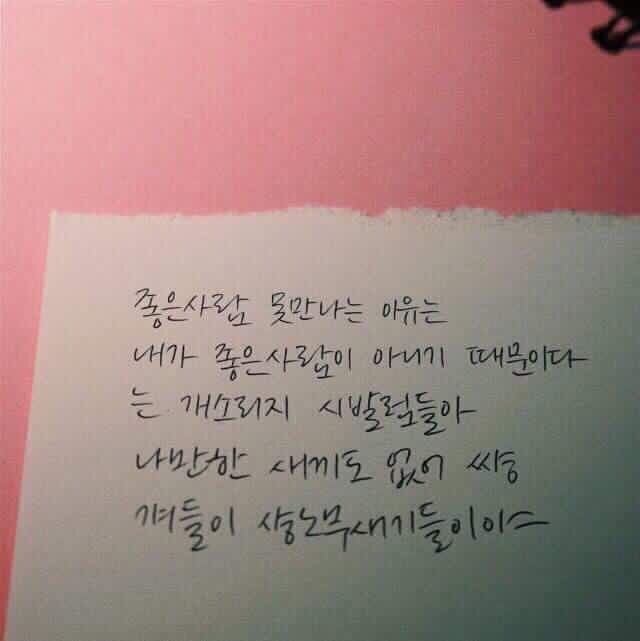 좋은사람 못만나는 이유는
내가 좋은사람이 아니기 때문이다
는 개소리지 시발럼들아
나만한 새끼도 없어 쌍
껴들이 상노무새기들이이스